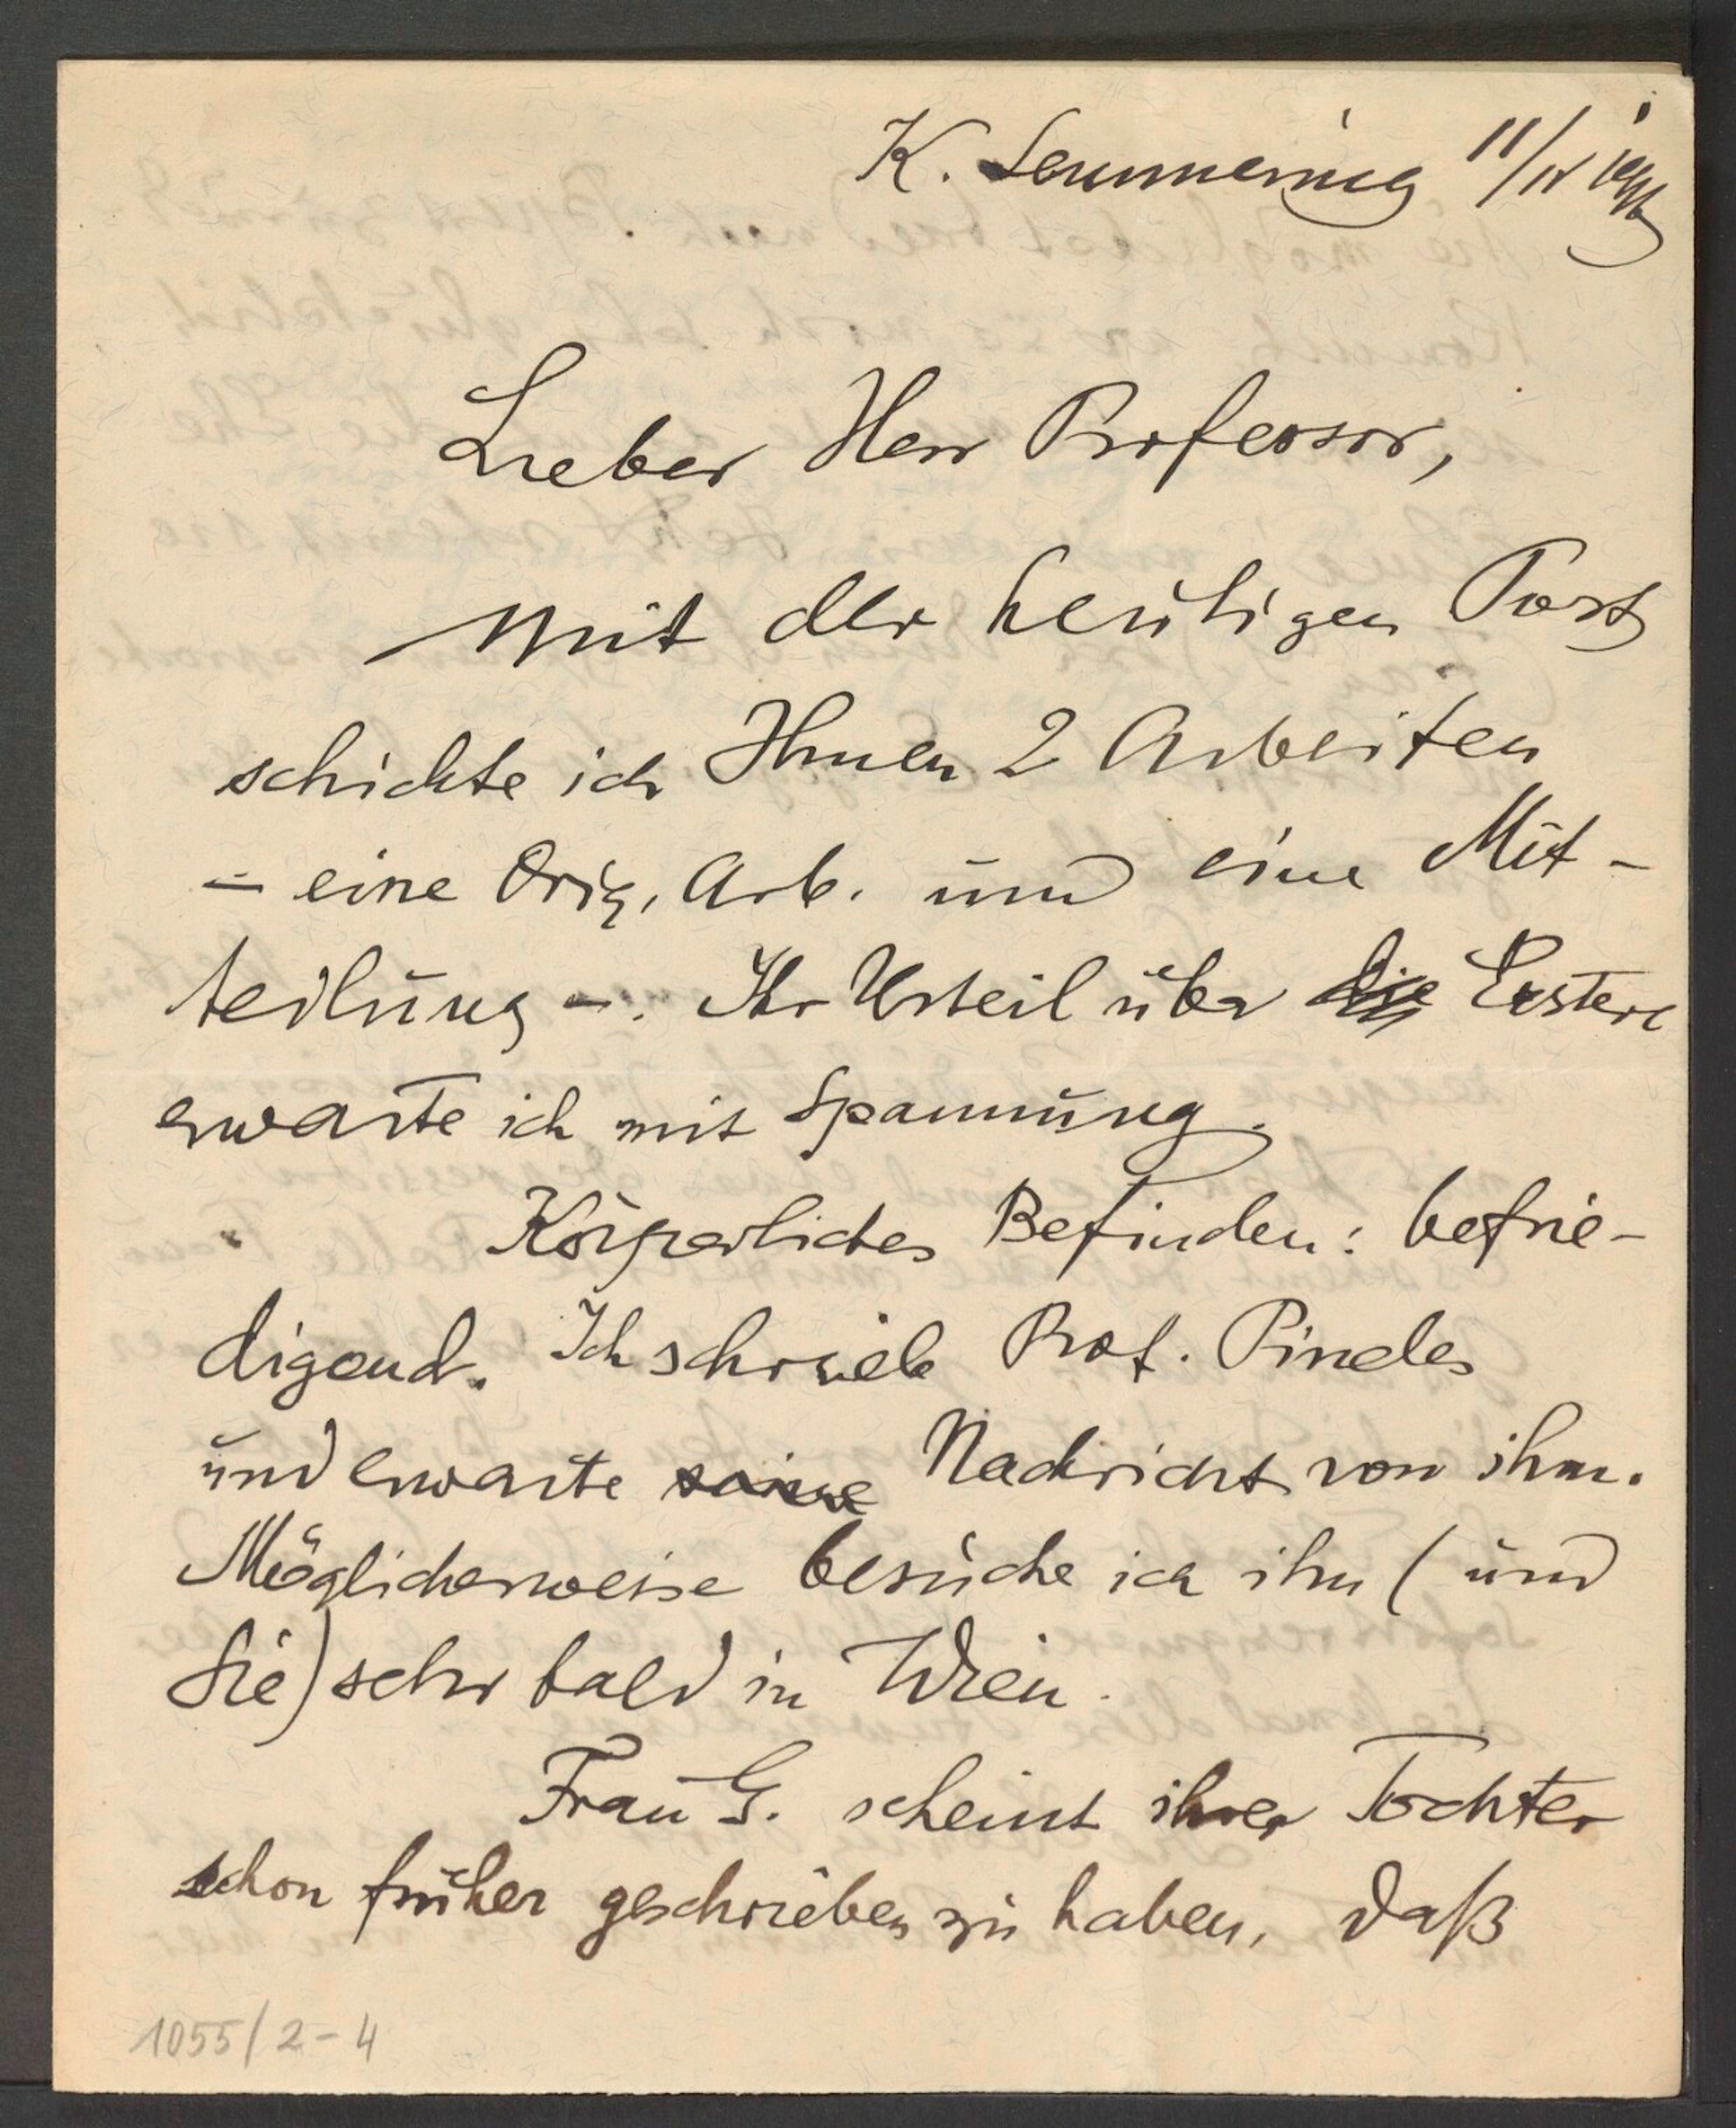 K. Semmering 11/IV
Lieber Herr Professor,
mit der heutigen Post
schickte ich Ihnen 2 Arbeiten
– eine Orig. Arb. und eine Mit-
teilung –. Ihr Urteil über die Erstere
erwarte ich mit Spannung.
Körperliches Befinden: befrie-
digend. Ich schrieb Prof. Pineles
und erwarte seine Nachricht von ihm.
Möglicherweise besuche ich ihn (und
Sie) sehr bald in Wien.
Frau G. scheint ihrer Tochter
schon früher geschrieben zu haben, daß
1055/2-4